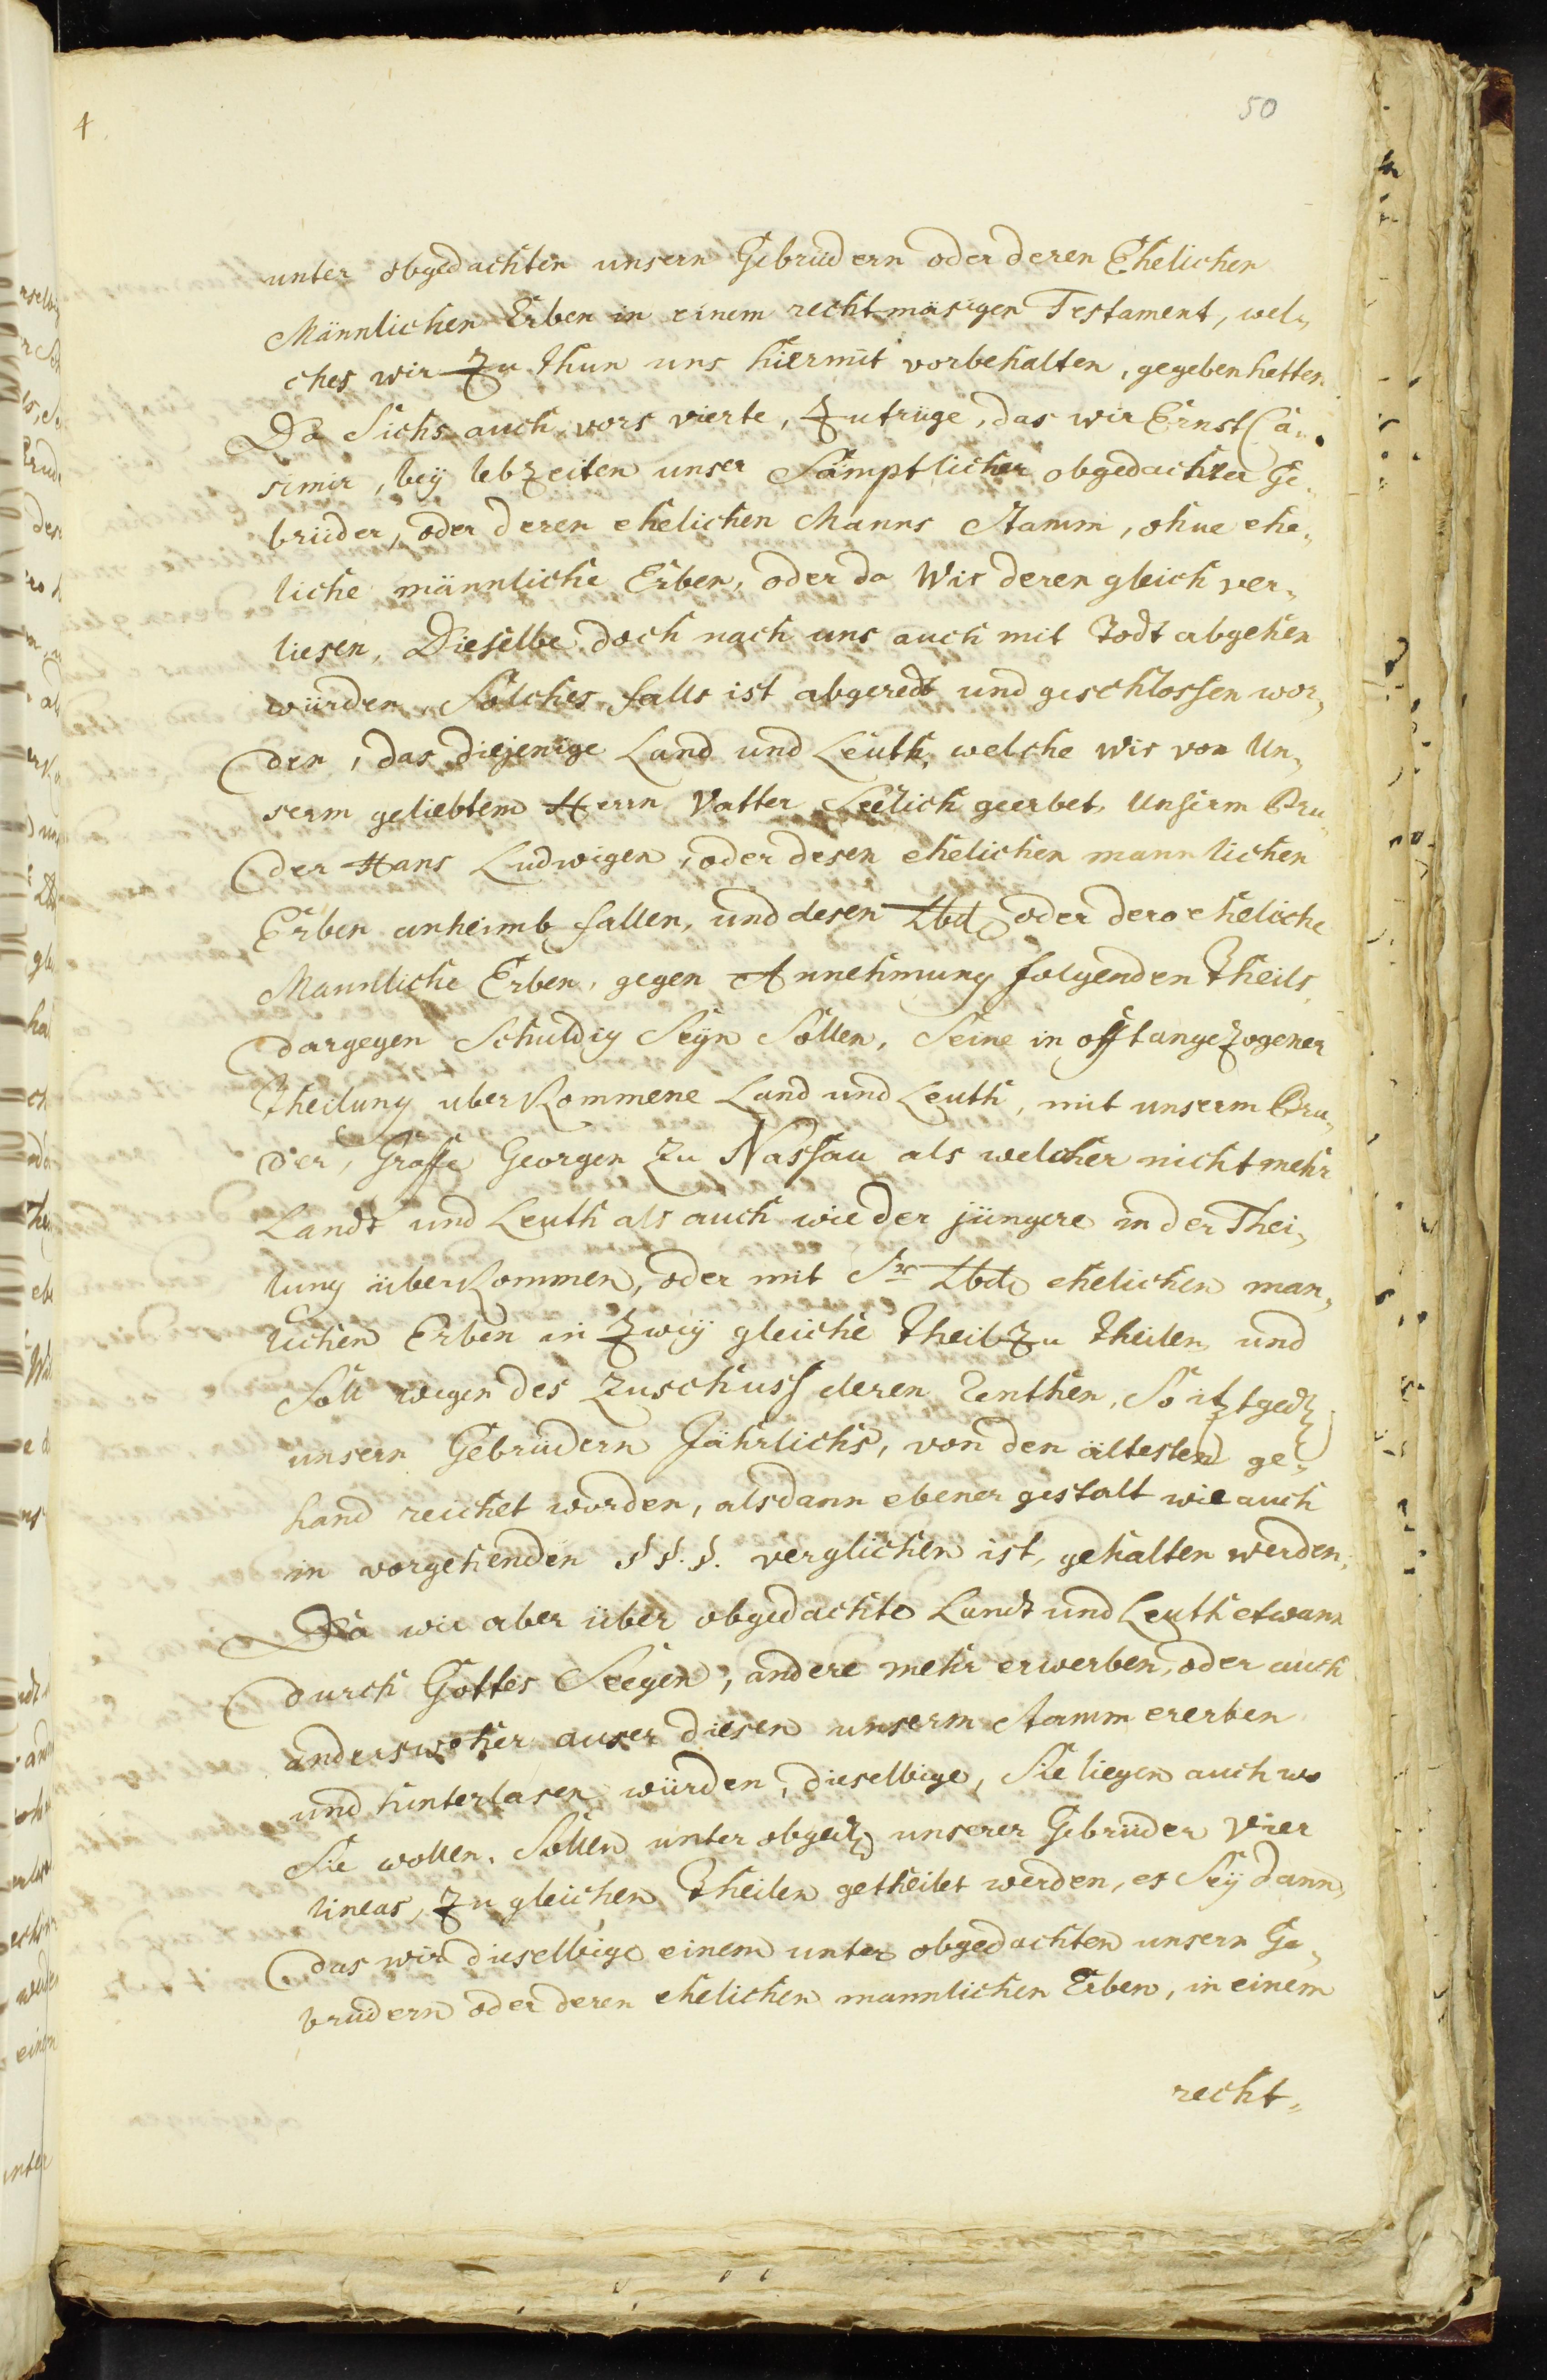 4.
50
unter obgedachten unsern Gebrüdern oder deren Ehelichen
Männlichen Erben in einem rechtmäsigen Testament, wel„
ches wir zu thun uns hiermit vorbehalten, gegeben hetten.
Da Sichs auch vors vierte, zutrüge, das wir Ernst Ca„
simir, bey lebzeiten unser Sämptlicher obgedachter Ge„
brüder, oder deren ehelichen Manns Stamm, ohne ehe„
liche männliche Erben, oder da Wir deren gleich ver„
liesen, Dieselbe doch nach uns auch mit Todt abgehen
würden, Solches falls ist abgeredt und geschlossen wor„
den, das diejenige Land und Leuth, welche wir von Un„
serm geliebtem Herrn Vatter Seelich geerbet, Unserm Bru„
der Hans Ludwigen, oder desen ehelichen mannlichen
Erben anheimb fallen, und desen Lbd oder dero eheliche
Mannliche Erben, gegen Annehmung folgenden Theils,
dargegen Schuldig Seyn Sollen, Seine in offtangezogener
Theilung uberkommene Land und Leuth, mit unserm Bru„
der, Graffe Georgen zu Nassau als welcher nicht mehr
Landt und Leuth als auch wie der jüngere in der Thei„
lung überkommen, oder mit Sr Lbd ehelichen man„
lichen Erben in zwey gleiche Theil zu theilen, und
Soll wegen des Zuschuss deren Renthen, So itztged.
unsern Gebrüdern Jährlichs, von den ältesten ge„
hand reichet worden, alsdann ebener gestalt wie auch
in vorgehenden §§.§. verglichen ist, gehalten werden.
Da wir aber über obgedachte Landt und Leuth etwann
durch Gottes Seegen, andere mehr erwerben, oder auch
anderswoher auser diesen unserm Stamm ererben
und hinterlasen würden, dieselbige, Sie liegen auch wo
Sie wollen, Sollen unter obged. unserer Gebrüder vier
lineas, zu gleichen Theilen getheilet werden, es Sey dann,
das wir dieselbige einem unter obgedachten unsern Ge„
brüdern oder deren ehelichen mannlichen Erben, in einem
recht„